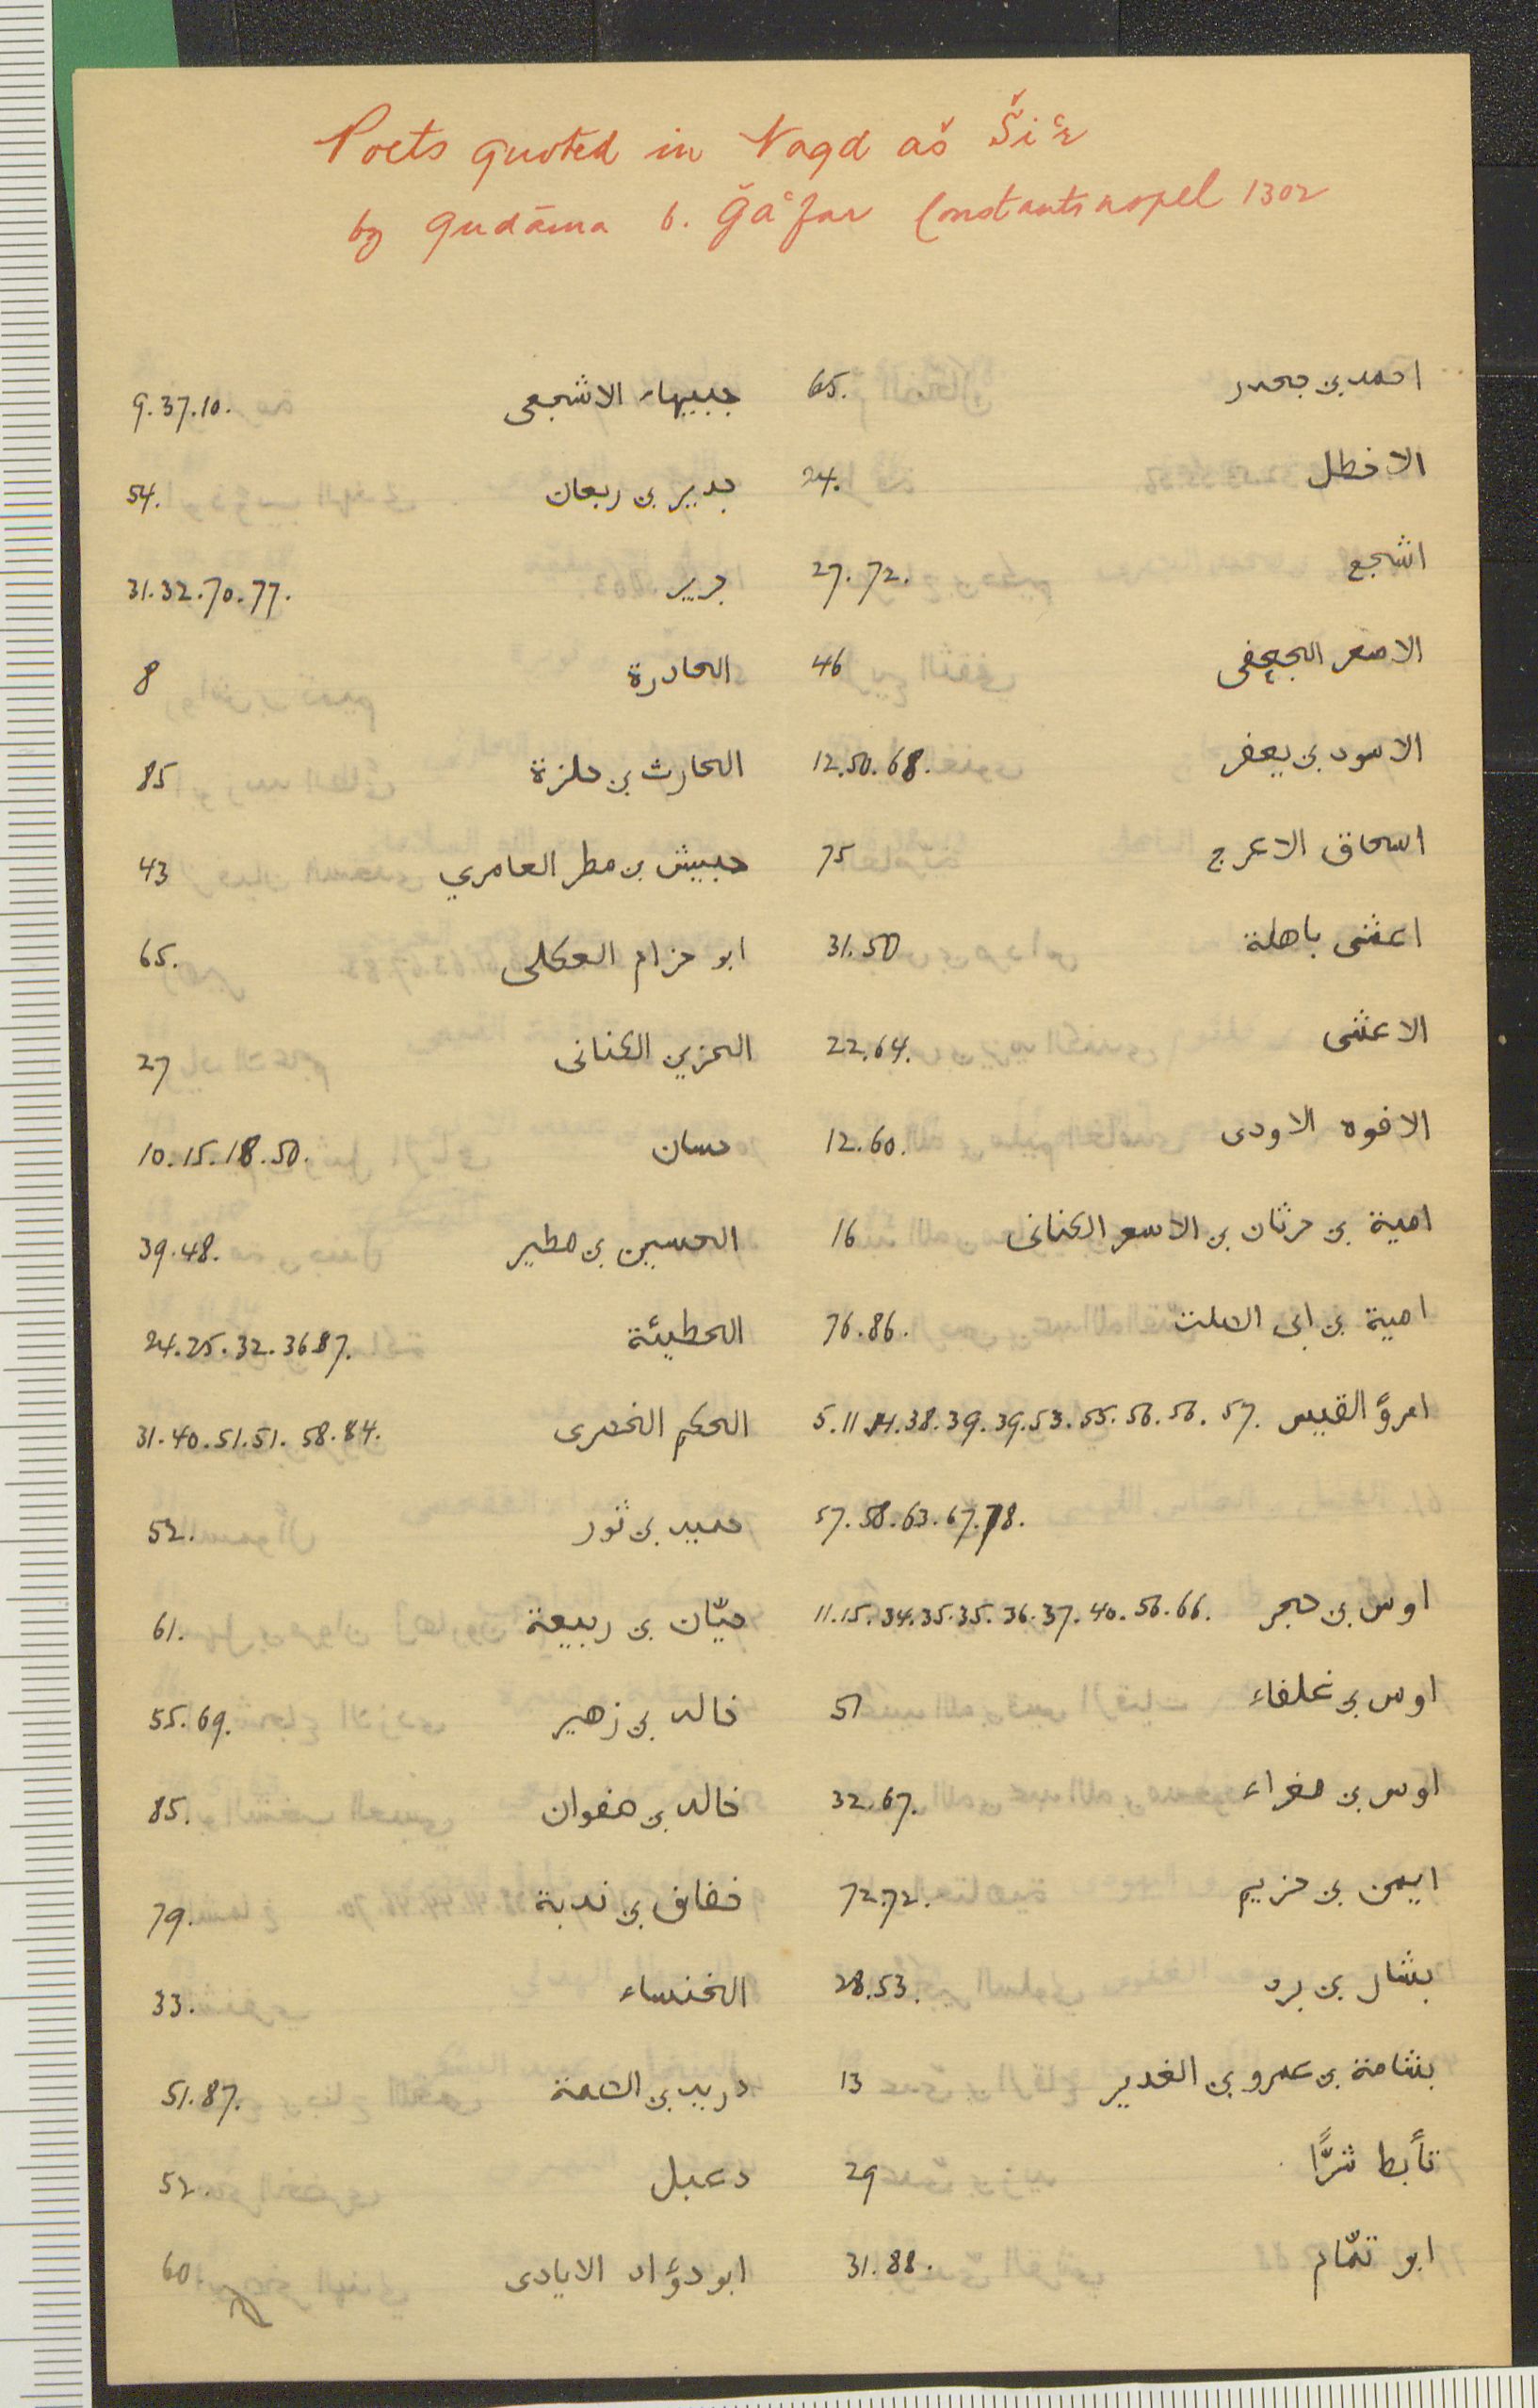 Poets quoted in Naqd aš Ši'r
by Qudāma b. Ǧa'far Constantinopel 1302
احمد بن جحدر 65.
الاخطل 24.
اشجع 27.72.
الاصعر الجعفى 46
الاسود بن يعفر 12.50.68.
اسحاق الاعرج 75
اعشى باهلة 31.50
الاعشى 22.64.
الافوه الاودى 12.60.
امية بن حرثان بن الاسعر الكنانى 16
امية بن ابى الصلت 76.86.
امروُ القيس 5.11.14.38.39.39.53.55.56.56.57.
57.58.63.67.78.
اوس بن حجر 11.15.34.35.35.36.37.40.56.66.
اوس بن غلفاء 51
اوس بن مغراء 32.67.
ايمن بن خزيم 72.72.
بشار بن برد 28.53.
بشامة بن عمرو بن الغدير 13
تأبط شرًّا 29
ابو تمّام 31.88.
جبيهاء الاشجعى 9.37.10.
جدير بن ربعان 54.
جرير 31.32.70.77.
الحادرة 8
الحارث بن حلزة 85
حبيش بن مطر العامري 43
ابو حزام العكلى 65.
الحزين الكنانى 27
حسان 10.15.18.50.
الحسين بن مطير 39.48.
الحطيئة 24.25.32.36.87.
الحكم الخضرى 31.40.51.51.58.84.
حميد بن ثور 52.
حيّان بن ربيعة 61.
خالد بن زهير 55.69.
خالد بن صفوان 85.
خفاف بن ندبة 79.
الخنساء 33.
دريد بن الصمة 51.87.
دعبل 52.
ابو دوُاد الايادى 60.